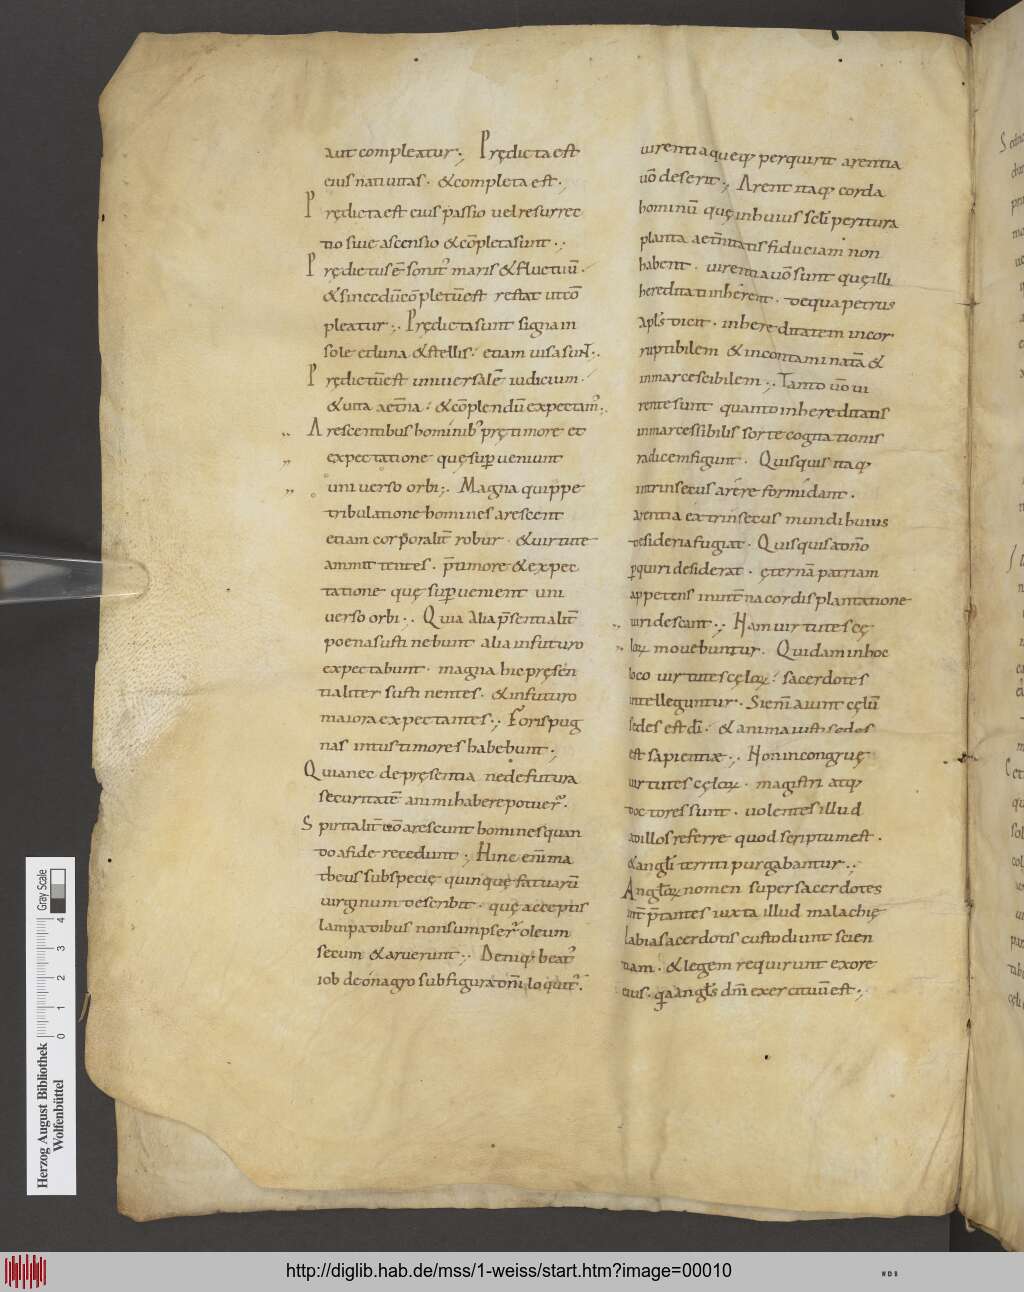 aut compleatur·, Prędicta est
eius natiuitas· & completa est·,
Prędicta est eius passio uel resurrec
tio siue ascensio & cōpleta sunt·,
Prędictus ē sonit᾽ maris & fluctuū·
& si necdū cōpletū est restat ut cō
pleatur·, Prędicta sunt signa in
sole et luna & stellis· etiam uisa sunt·,
Prędictū est uniuersale iudicium·
& uita aet̄na· & cōplendū expectam᾽·,
Arescentibus hominib᾽ prę timore et
expectatione quę sup̱ueniunt
uniuerso orbi·, Magna quippe
tribulatione homines arescent
etiam corporalit̄ robur· & uirtute
ammittentes· p̄ timore & expec
tatione quę sup̱uenient uni
uerso orbi·, Quia alia p̄sentialit̄
poena sustinebunt alia in futuro
expectabunt· magna hic pręsen
tialiter sustinentes· & in futuro
maiora expectantes·, Foris pug
nas intus timores habebunt·,
Quia nec de pręsentia nec de futura
securitatē animi habere potuer̄·
Spiritalit̄ uō arescunt homines quan
do a fide recedunt·, Hinc enī ma
theus sub specie quinque fatuarū
uirginum describit· quę acceptis
lampadibus non sumpser̄ oleum
secum & aruerunt·, Deniq; beat᾽
iob de onagro sub figura dn̄i loquit᾽·
uirentia queq; perquirit arentia
uō deserit·, Arent itaq; corda
hominū quę in huius sc̄li peritura
planta aet̄nitatis fiduciam non
habent· uirentia uō sunt quę illi
hereditati inherent· de qua petrus
apl̄s dicit· in hereditatem incor
ruptibilem & incontaminatā &
inmarcescibilem·, Tanto uō ui
rente sunt quanto in hereditatis
inmarcessibilis sorte cognationis
radicem figunt· Quisquis itaq;
intrinsecus arere formidant·
arentia extrinsecus mundi huius
desideria fugiat· Quisquis a dn̄o
p̱quiri desiderat· ęternā patriam
appetens in int̄na cordis plantatione
uiridescant·, Nam uirtutes cę
loꝝ mouebuntur· Quidam in hoc
loco uirtutes cęloꝝ· sacerdotes
intelleguntur· Sic enī aiunt cęlū
sedes est dī· & anima iusti sedes
est sapientiæ·, Non incongruę
uirtutes cęloꝝ· magistri atq;
doctores sunt· uolentes illud
ad illos referre quod scriptum est·
& angl̄i territi purgabantur·,
Angl̄oꝝ nomen super sacerdotes
int̄p̄tantes iuxta illud malachię
Labia sacerdotis custodiunt scien
tiam· & legem requirunt ex ore
eius· quia angl̄s dn̄i exercituū est·,
Herzog August Bibliothek
Wolfenbüttel
0 1 2 3 4
Gray Scale
http://diglib.hab.de/mss/1-weiss/start.htm?image=00010